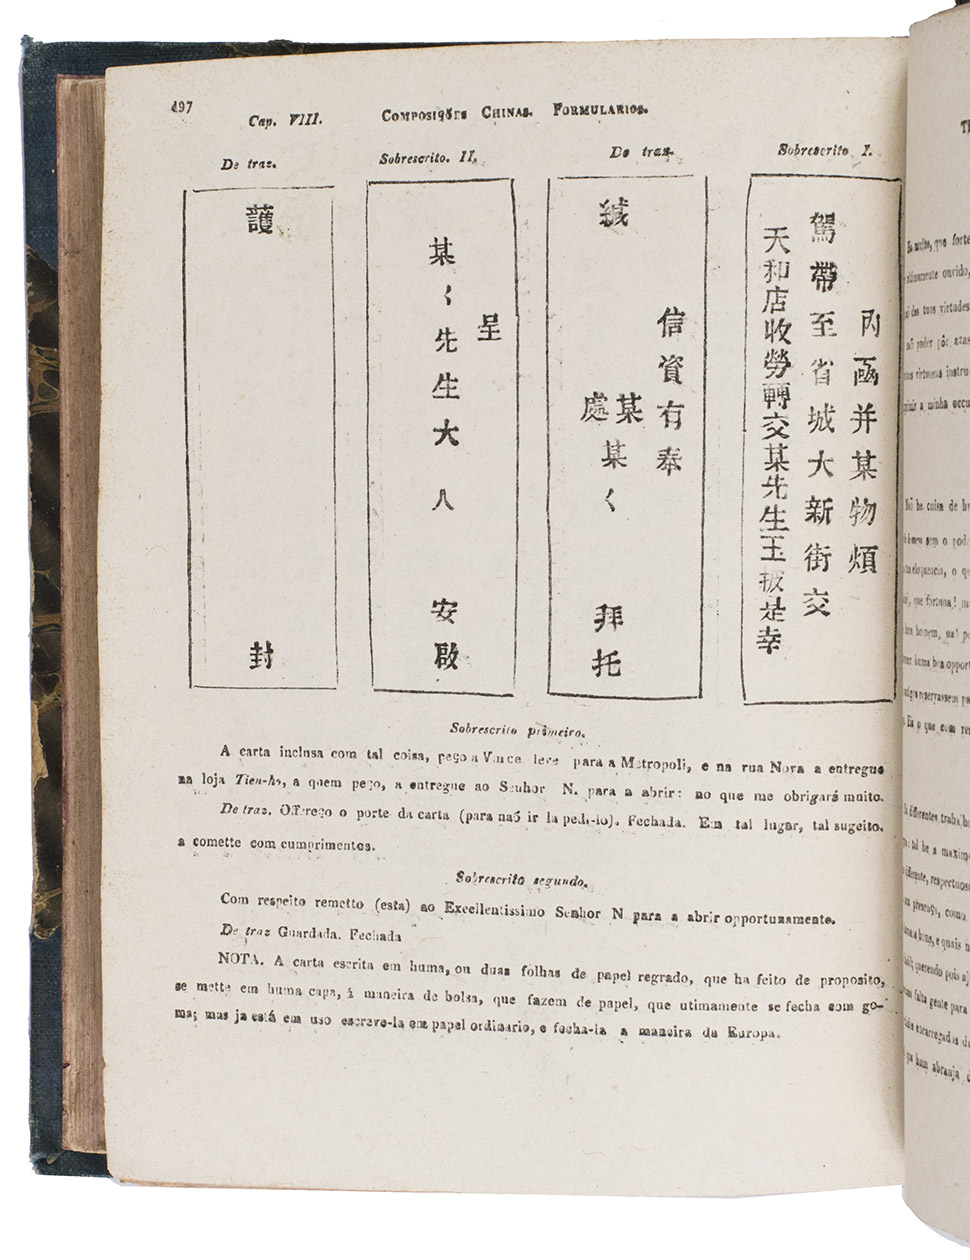 497
Cap. VIII. Composições Chinas. Formularios.
De traz. Sobrescrito. II. De traz. Sobrescrito I.
內函并某物煩
駕帶至省城大新街交
天和店收勞轉交某先生玉披是幸
緘
信資有奉
某處
某〱
拜托
呈
某〱先生大人
安啟
護
封
Sobrescrito primeiro.
A carta inclusa com tal coisa, peço a Vmce leve para a Metropoli, e na rua Nova a entregue
na loja Tien-ho, a quem peço, a entregue ao Senhor N. para a abrir: no que me obrigará muito.
De traz. Offereço o porte da carta (para naõ ir la pedi-lo). Fechada. Em tal lugar, tal sugeito.
a comette com cumprimentos.
Sobrescrito segundo.
Com respeito remetto (esta) ao Excellentissimo Senhor N para a abrir opportunamente.
De traz Guardada. Fechada
NOTA. A carta escrita em huma, ou duas folhas de papel regrado, que ha feito de proposito,
se mette em huma capa, á maneira de bolsa, que fazem de papel, que utimamente se fecha com go-
ma; mas ja está em uso escreve-la em papel ordinario, e fecha-la a maneira da Europa.